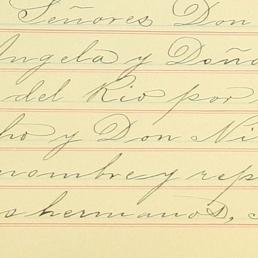 Señores Don
Angela y Doña
del Rio por
ho y Don Ni
nombre y rep
s hermanos,